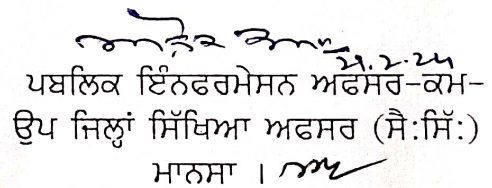 21.2.25
ਪਬਲਿਕ ਇੰਨਫਰਮੇਸਨ ਅਫਸਰ-ਕਮ-
ਉਪ ਜਿਲ੍ਹਾਂ ਸਿੱਖਿਆ ਅਫਸਰ (ਸੈ:ਸਿੱ:)
ਮਾਨਸਾ ।